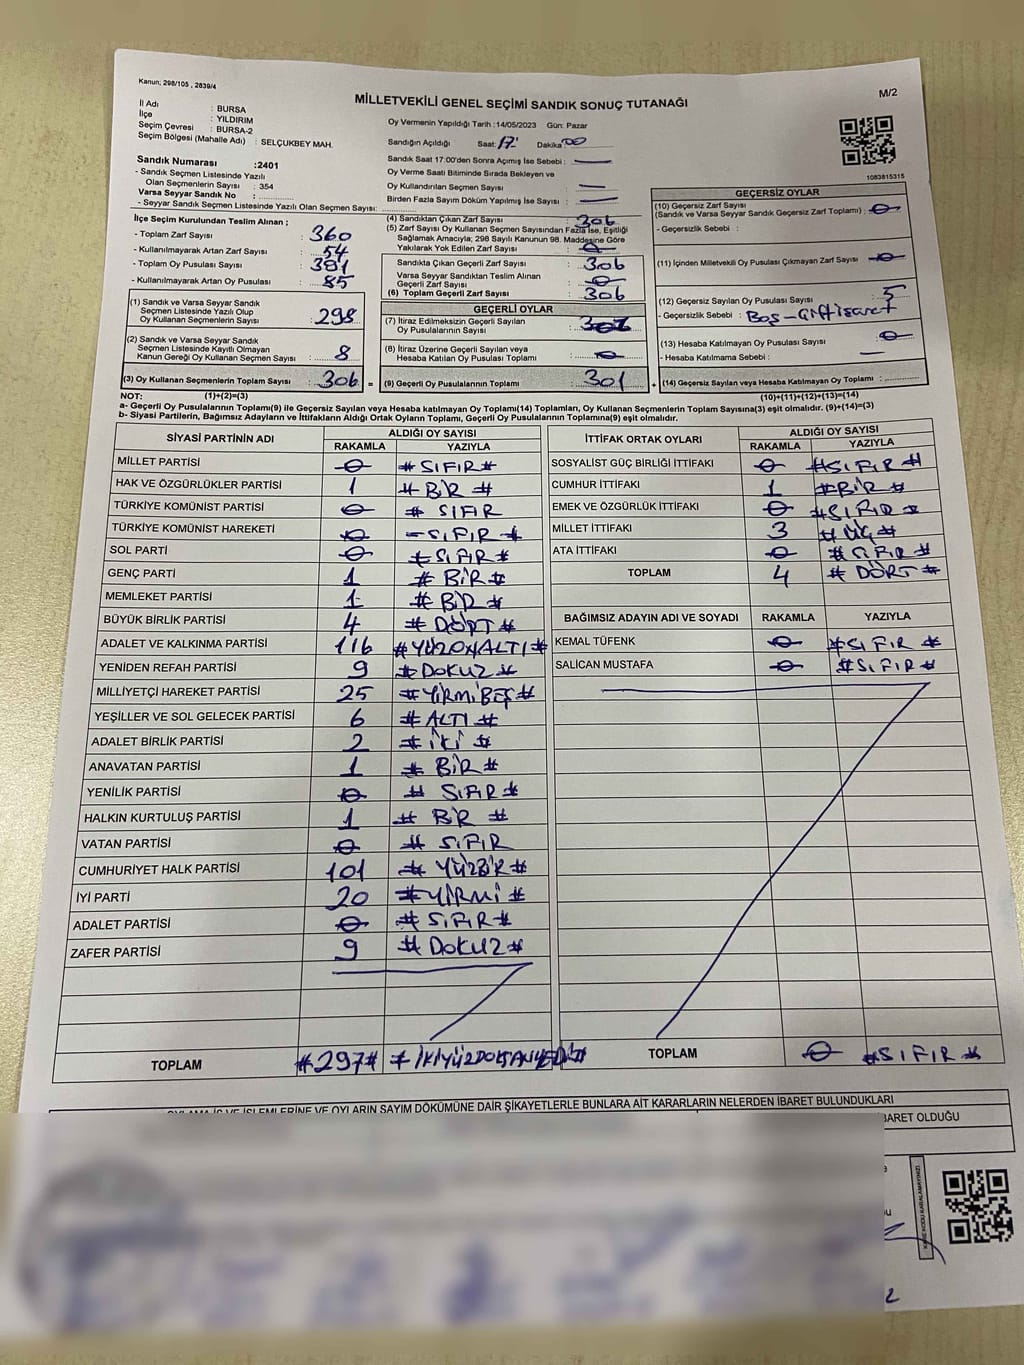 Kanun; 298/105 , 2839/4
MİLLETVEKİLİ GENEL SEÇİMİ SANDIK SONUÇ TUTANAĞI
M/2
İl Adı : BURSA
İlçe : YILDIRIM
Seçim Çevresi : BURSA-2
Seçim Bölgesi (Mahalle Adı) : SELÇUKBEY MAH.
Sandık Numarası :2401
- Sandık Seçmen Listesinde Yazılı
Olan Seçmenlerin Sayısı : 354
Varsa Seyyar Sandık No :
- Seyyar Sandık Seçmen Listesinde Yazılı Olan Seçmen Sayısı:
İlçe Seçim Kurulundan Teslim Alınan ;
- Toplam Zarf Sayısı : 360
- Kullanılmayarak Artan Zarf Sayısı : 54
- Toplam Oy Pusulası Sayısı : 391
- Kullanılmayarak Artan Oy Pusulası : 85
(1) Sandık ve Varsa Seyyar Sandık
Seçmen Listesinde Yazılı Olup
Oy Kullanan Seçmenlerin Sayısı : 298
(2) Sandık ve Varsa Seyyar Sandık
Seçmen Listesinde Kayıtlı Olmayan
Kanun Gereği Oy Kullanan Seçmen Sayısı : 8
(3) Oy Kullanan Seçmenlerin Toplam Sayısı : 306 =
Oy Vermenin Yapıldığı Tarih :14/05/2023 Gün: Pazar
Sandığın Açıldığı Saat: 17 Dakika 00
Sandık Saat 17:00'den Sonra Açımış İse Sebebi : —
Oy Verme Saati Bitiminde Sırada Bekleyen ve
Oy Kullandırılan Seçmen Sayısı : —
Birden Fazla Sayım Döküm Yapılmış İse Sayısı : —
(4) Sandıktan Çıkan Zarf Sayısı : 306
(5) Zarf Sayısı Oy Kullanan Seçmen Sayısından Fazla İse, Eşitliği
Sağlamak Amacıyla; 298 Sayılı Kanunun 98. Maddesine Göre
Yakılarak Yok Edilen Zarf Sayısı : 0
Sandıkta Çıkan Geçerli Zarf Sayısı : 306
Varsa Seyyar Sandıktan Teslim Alınan
Geçerli Zarf Sayısı : 0
(6) Toplam Geçerli Zarf Sayısı : 306
GEÇERLİ OYLAR
(7) İtiraz Edilmeksizin Geçerli Sayılan
Oy Pusulalarının Sayısı :
(8) İtiraz Üzerine Geçerli Sayılan veya
Hesaba Katılan Oy Pusulası Toplamı : 0
(9) Geçerli Oy Pusulalarının Toplamı : 301 +
1083815315
GEÇERSİZ OYLAR
(10) Geçersiz Zarf Sayısı
(Sandık ve Varsa Seyyar Sandık Geçersiz Zarf Toplamı) : 0
- Geçersizlik Sebebi :
(11) İçinden Milletvekili Oy Pusulası Çıkmayan Zarf Sayısı : 0
(12) Geçersiz Sayılan Oy Pusulası Sayısı : 5
- Geçersizlik Sebebi : Boş-Çift işaret
(13) Hesaba Katılmayan Oy Pusulası Sayısı : 0
- Hesaba Katılmama Sebebi : —
(14) Geçersiz Sayılan veya Hesaba Katılmayan Oy Toplamı :
NOT: (1)+(2)=(3) (10)+(11)+(12)+(13)=(14)
a- Geçerli Oy Pusulalarının Toplamı(9) ile Geçersiz Sayılan veya Hesaba katılmayan Oy Toplamı(14) Toplamları, Oy Kullanan Seçmenlerin Toplam Sayısına(3) eşit olmalıdır. (9)+(14)=(3)
b- Siyasi Partilerin, Bağımsız Adayların ve İttifakların Aldığı Ortak Oyların Toplamı, Geçerli Oy Pusulalarının Toplamına(9) eşit olmalıdır.
SİYASİ PARTİNİN ADI ALDIĞI OY SAYISI
RAKAMLA YAZIYLA
MİLLET PARTİSİ 0 # SIFIR #
HAK VE ÖZGÜRLÜKLER PARTİSİ 1 # BİR #
TÜRKİYE KOMÜNİST PARTİSİ 0 # SIFIR
TÜRKİYE KOMÜNİST HAREKETİ 0 # SIFIR #
SOL PARTİ 0 # SIFIR #
GENÇ PARTİ 1 # BİR #
MEMLEKET PARTİSİ 1 # BİR #
BÜYÜK BİRLİK PARTİSİ 4 # DÖRT #
ADALET VE KALKINMA PARTİSİ 116 # YÜZONALTI #
YENİDEN REFAH PARTİSİ 9 # DOKUZ #
MİLLİYETÇİ HAREKET PARTİSİ 25 # YİRMİBEŞ #
YEŞİLLER VE SOL GELECEK PARTİSİ 6 # ALTI #
ADALET BİRLİK PARTİSİ 2 # İKİ #
ANAVATAN PARTİSİ 1 # BİR #
YENİLİK PARTİSİ 0 # SIFIR #
HALKIN KURTULUŞ PARTİSİ 1 # BİR #
VATAN PARTİSİ 0 # SIFIR
CUMHURİYET HALK PARTİSİ 101 # YÜZBİR #
İYİ PARTİ 20 # YİRMİ #
ADALET PARTİSİ 0 # SIFIR #
ZAFER PARTİSİ 9 # DOKUZ #
TOPLAM #297# # İKİYÜZDOKSANYEDİ #
İTTİFAK ORTAK OYLARI ALDIĞI OY SAYISI
RAKAMLA YAZIYLA
SOSYALİST GÜÇ BİRLİĞİ İTTİFAKI 0 # SIFIR #
CUMHUR İTTİFAKI 1 # BİR #
EMEK VE ÖZGÜRLÜK İTTİFAKI 0 # SIFIR #
MİLLET İTTİFAKI 3 # ÜÇ #
ATA İTTİFAKI 0 # SIFIR #
TOPLAM 4 # DÖRT #
BAĞIMSIZ ADAYIN ADI VE SOYADI RAKAMLA YAZIYLA
KEMAL TÜFENK 0 # SIFIR #
SALİCAN MUSTAFA 0 # SIFIR #
TOPLAM 0 # SIFIR #
OYLAMA İŞ VE İŞLEMLERİNE VE OYLARIN SAYIM DÖKÜMÜNE DAİR ŞİKAYETLERLE BUNLARA AİT KARARLARIN NELERDEN İBARET BULUNDUKLARI
BARET OLDUĞU
KARE KODU KARALAMAYINIZ!